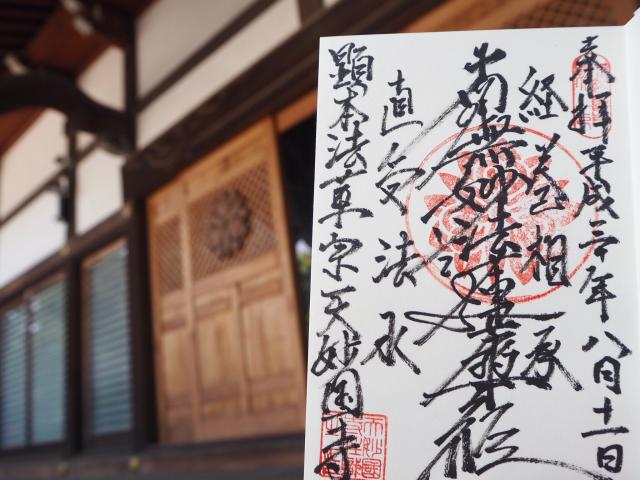 奉拝 平成三十年八月十一日
経巻相承
南無妙法蓮華経
直授法水
顕本法華宗 天妙国寺